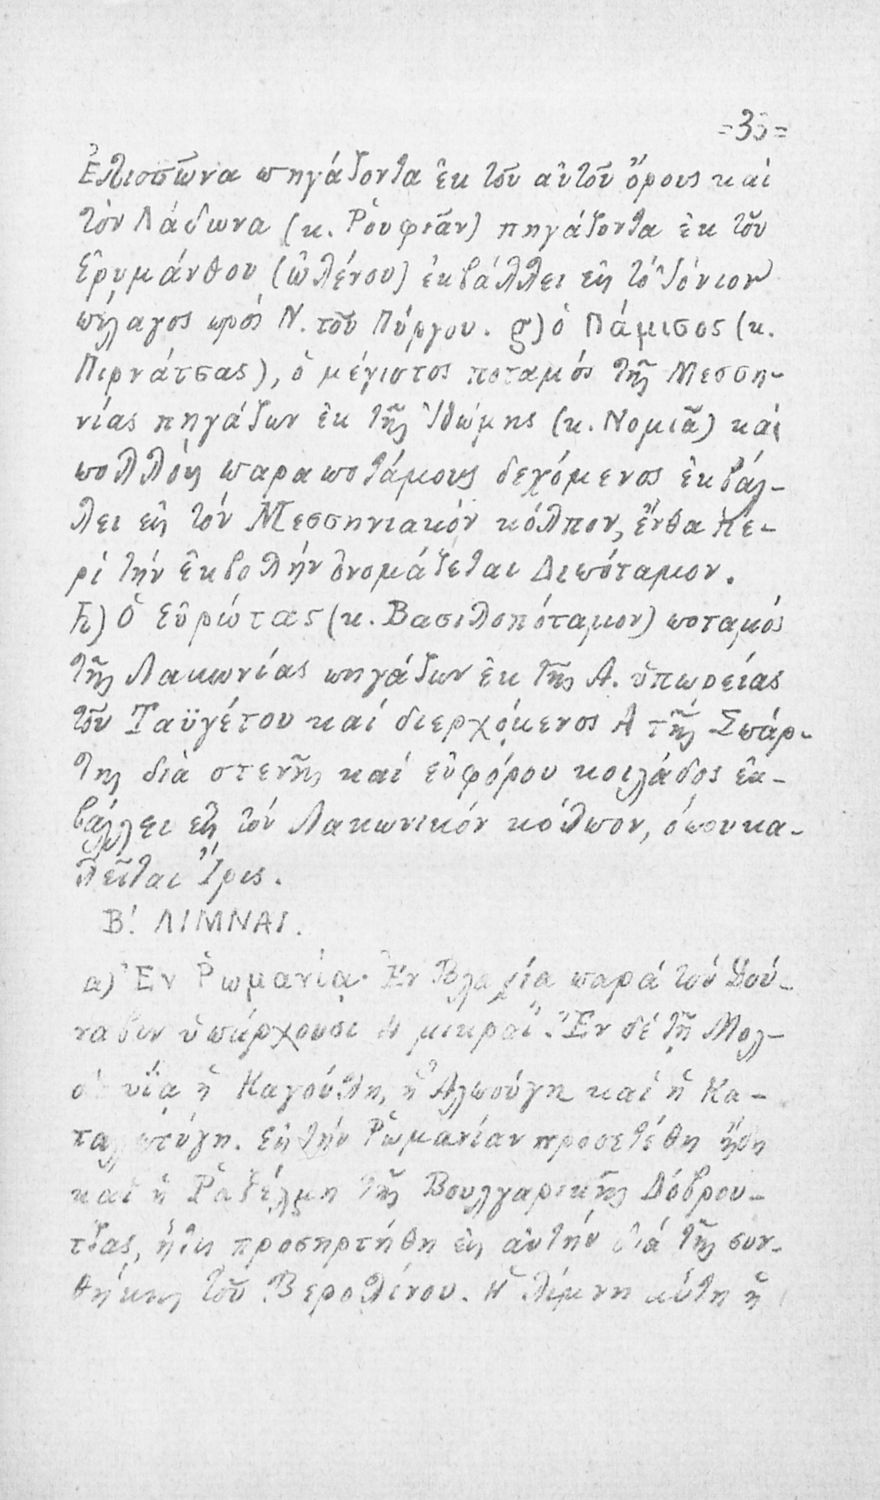 =35=
Ἐλισσῶνα πηγάζοντα ἐκ τοῦ αὐτοῦ ὄρους καὶ
τὸν Λάδωνα (κ. Ῥουφιᾶν) πηγάζοντα ἐκ τοῦ
Ἐρυμάνθου (ὠλένου) ἐκβάλλει εἰς τὸ Ἰόνιον
πέλαγος πρὸς Ν. τοῦ Πύργου. g) ὁ Πάμισος (κ.
Πιρνάτσας), ὁ μέγιστος ποταμός τῆς Μεσση-
νίας πηγάζων ἐκ τῆς Ἰθώμης (κ. Νομιᾶ) καὶ
πολλοὺς παραποτάμους δεχόμενος ἐκβάλ-
λει εἰς τόν Μεσσηνιακόν κόλπον, ἔνθα πε-
ρί τήν ἐκβολήν ὀνομάζεται Διπόταμον.
h) Ὁ Εὐρώτας (κ. Βασιλοπόταμον) ποταμός
τῆς Λακωνίας πηγάζων ἐκ τῆς Α. ὑπωρείας
τοῦ Ταϋγέτου καί διερχόμενος Α τῆς Σπάρ-
της διὰ στενῆς καί εὐφόρου κοιλάδος ἐκ-
βάλλει εἰς τόν Λακωνικόν κόλπον, ὁπου κα-
λεῖται Ἴρις.
Β΄. ΛΙΜΝΑΙ.
α) Ἐν Ῥωμανίᾳ. Ἐν Βλαχίᾳ παρά τόν Δού-
ναβιν ὑπάρχουσι μικραί. Ἐν δέ τῇ Μολ-
δαυΐᾳ ἡ Καγούλη, ἡ Ἀλπούγη καί ἡ Κα-
ταλπούγη. Εἰς τήν Ῥωμανίαν προσετέθη ἤδη
καί ἡ Ῥαζέλμη τῆς Βουλγαρικῆς Δόβρου-
τζας, ἥτις προσηρτήθη εἰς αὐτήν διά τῆς συν-
θήκης τοῦ Βερολίνου. Ἡ λίμνη αὕτη ἢ